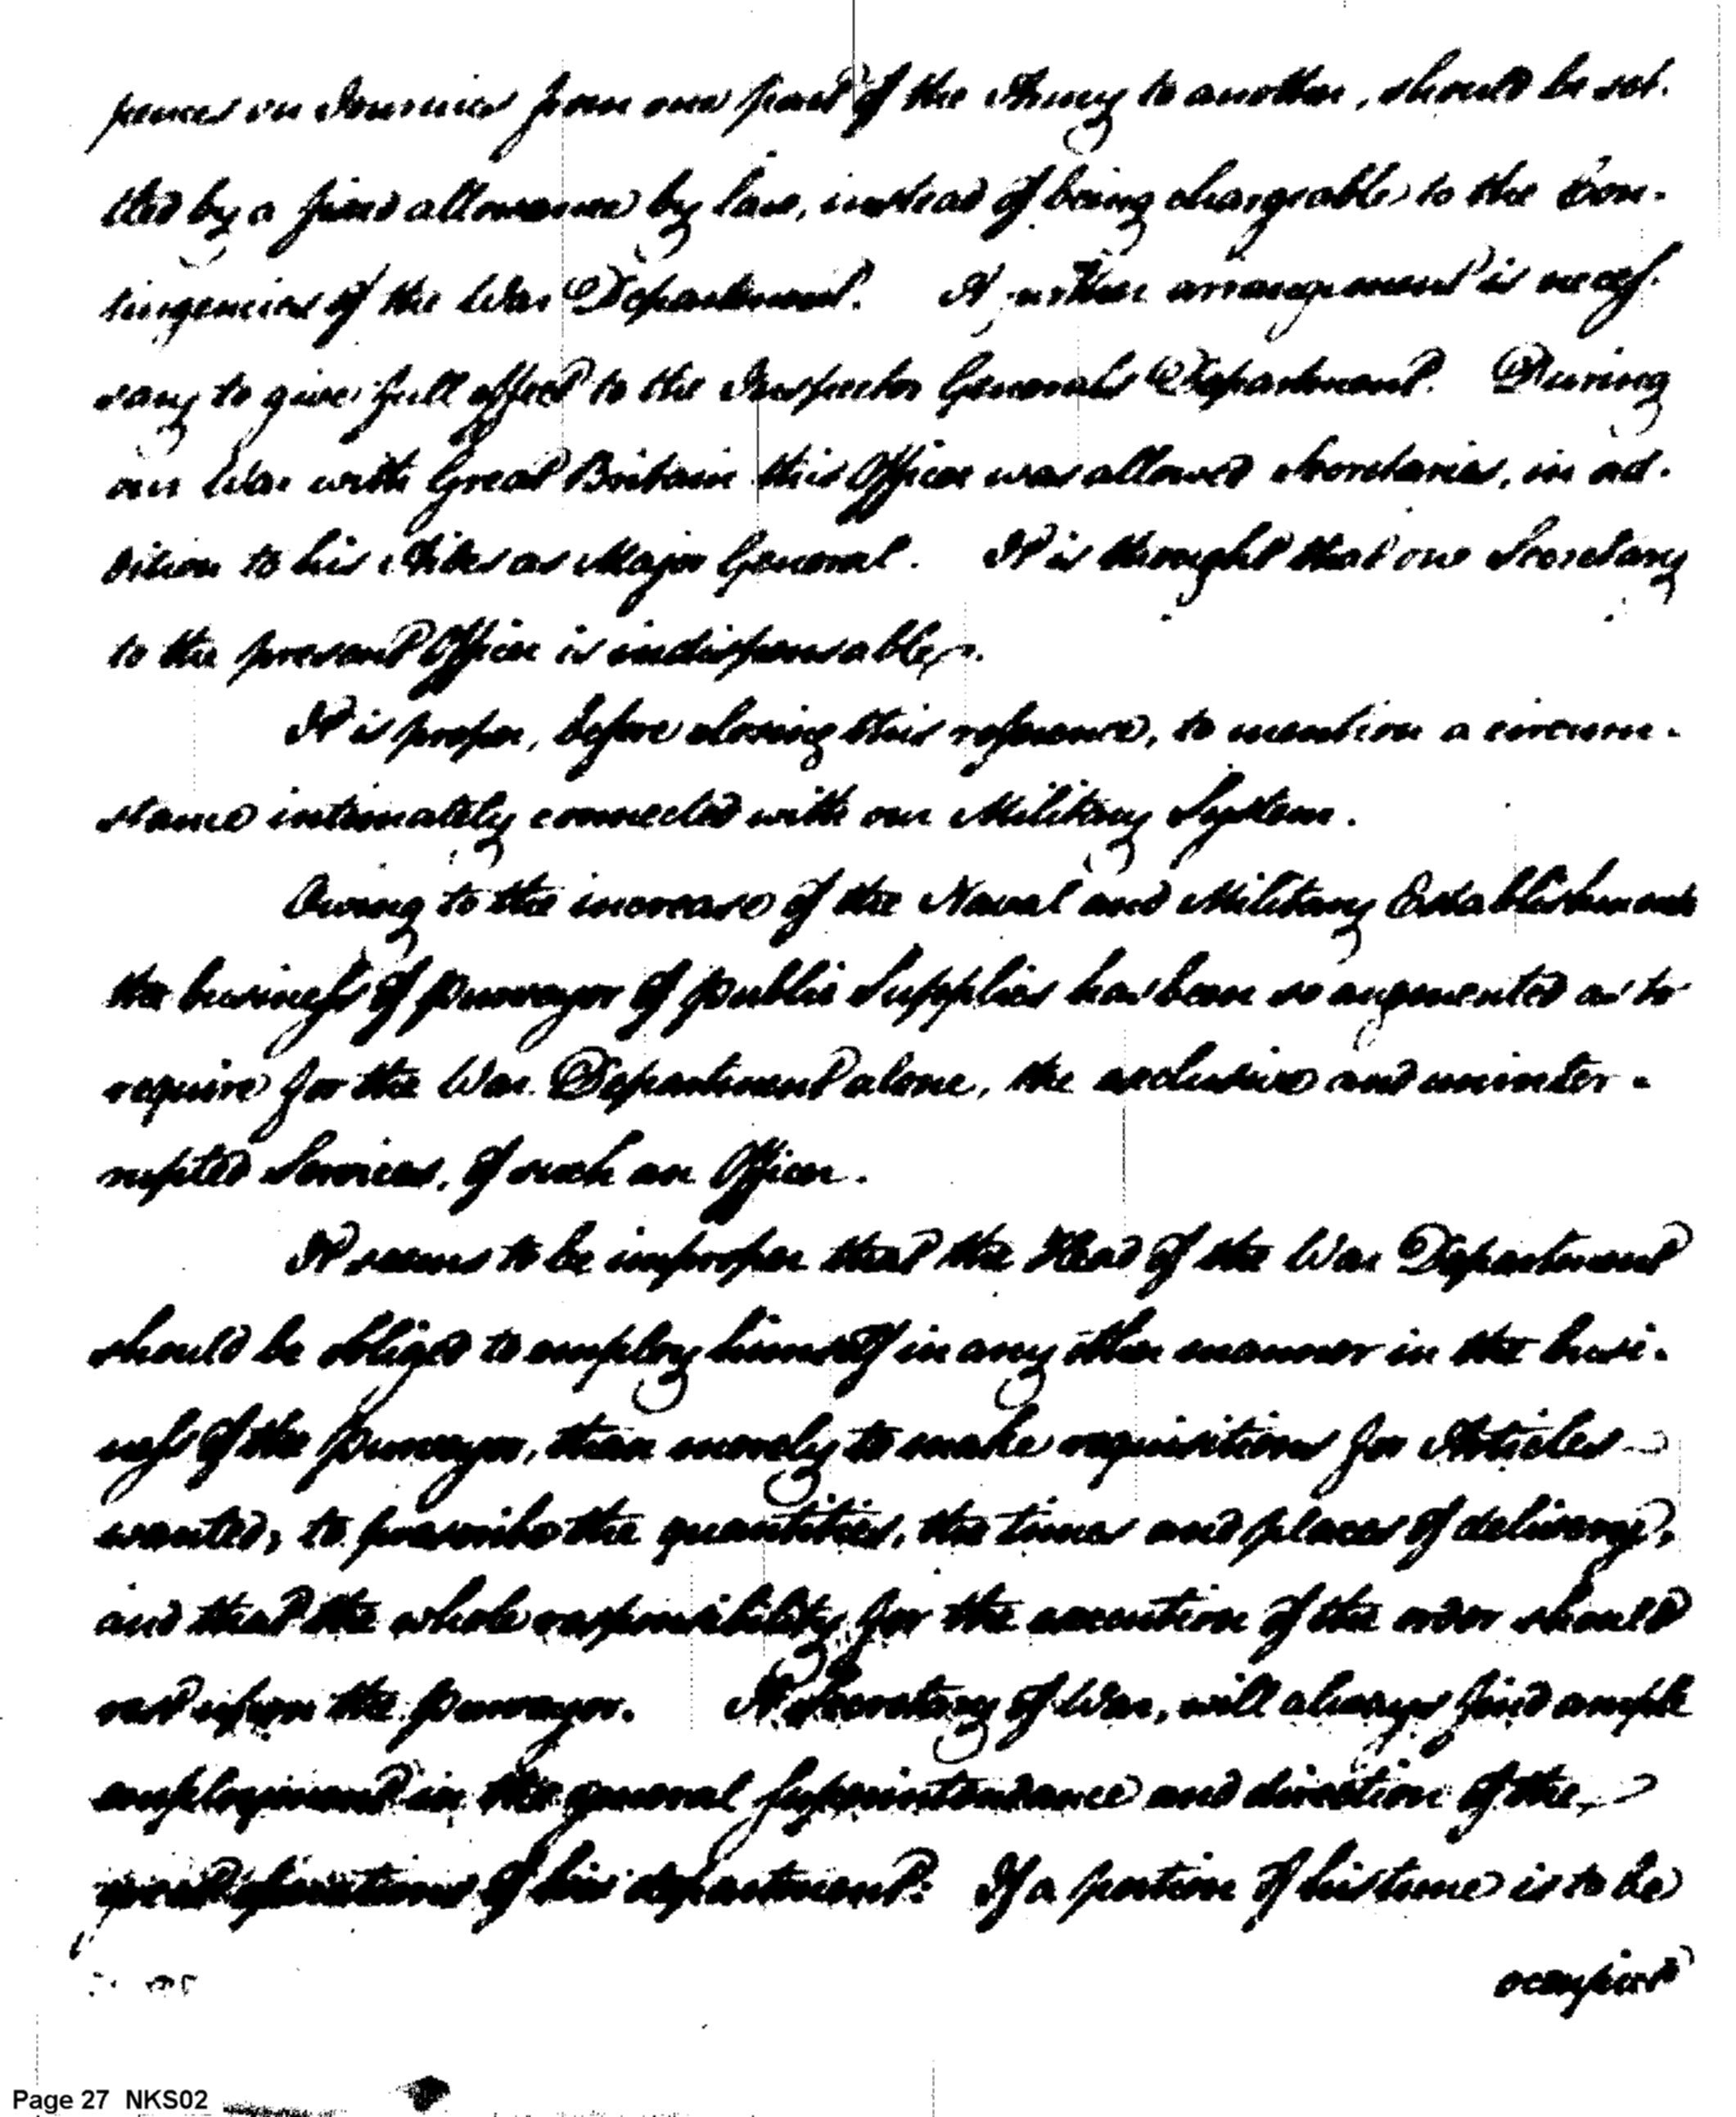 pences on Journies from one part of the Army to another, should be set-
tled by a fixed allowance by law, instead of being chargeable to the Con-
tingencies of the War Department. A further arrangement is neces-
sary to give full effect to the Inspector Generals Department. During
our War with Great Britain this Officer was allowed Secretaries, in ad-
dition to his Aides as Major General. It is thought that one Secretary
to the present Officer is indispensable.
It is proper, before closing this reference, to mention a circum-
stance intimately connected with our Military System.
Owing to the increase of the Naval and Military Establishments
the business of purveyor of public Supplies has been so augmented as to
require for the War Department alone, the exclusive and uninter-
rupted Services, of such an Officer.
It seems to be improper that the Head of the War Department
should be obliged to employ himself in any other manner in the busi-
ness of the purveyor, than merely to make requisitions for Articles
wanted, to prescribe the quantities, the times and places of delivery,
and that the whole responsibility for the execution of the order should
rest upon the purveyor. A Secretary of War, will always find ample
employment in the general Superintendance and direction of the
great operations of his department. If a portion of his time is to be
occupied
Page 27 NKS02